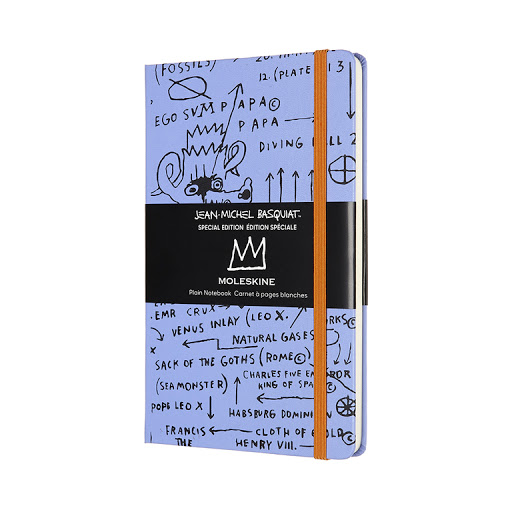 (FOSSILS)
12. (PLATE 13
EGO SUM PAPA©
PAPA —
DIVING
JEAN-MICHEL BASQUIAT™
SPECIAL EDITION ÉDITION SPÉCIALE
MOLESKINE
Plain Notebook Carnet à pages blanches
EMR CRUX
VENUS INLAY (LEO X.
NATURAL GASES
SACK OF THE GOTHS (ROME©)
CHARLES FIVE
(SEA MONSTER)
KING OF
POPE LEO X
HABSBURG DOMINION
FRANCIS — CLOTH OF GOLD
THE HENRY VIII.